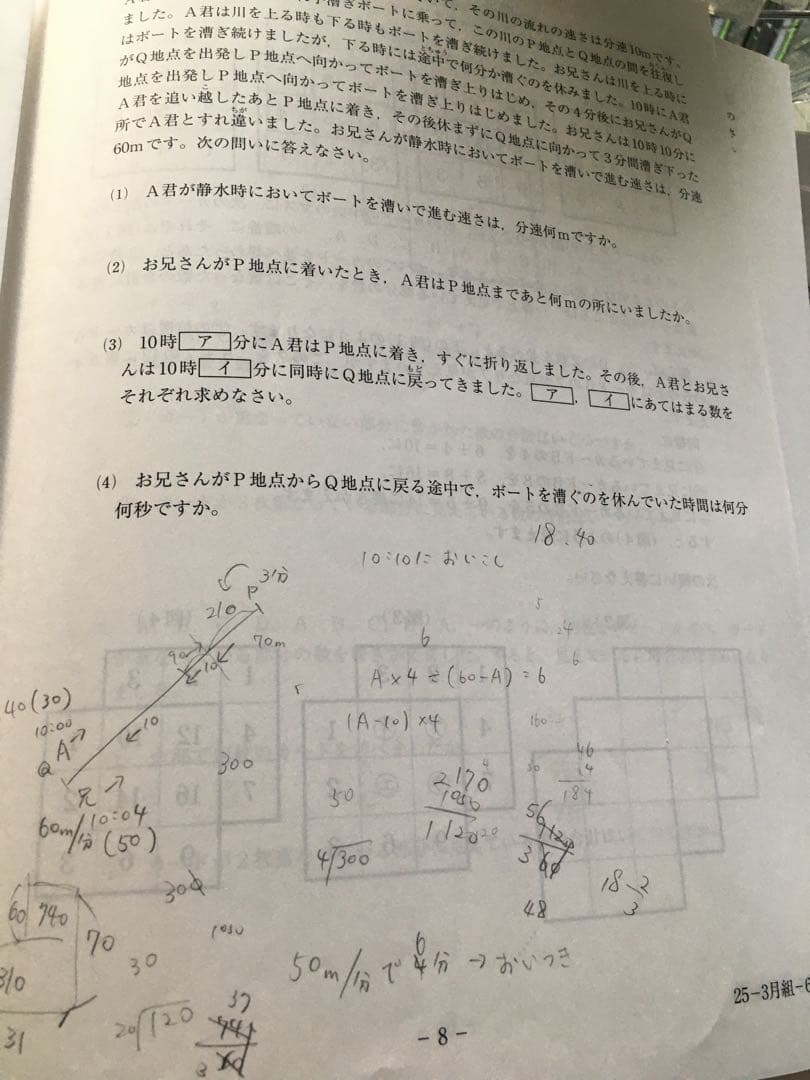 て,その川の流れの速さは分速10mです。
手漕ぎボートに乗って,この川のP地点とQ地点の間を往復し
ました。A君は川を上る時も下る時もボートを漕ぎ続けました。お兄さんは川を上る時に
はボートを漕ぎ続けましたが,下る時には途中で何分か漕ぐのを休みました。10時にA君
がQ地点を出発しP地点へ向かってボートを漕ぎ上りはじめ,その4分後にお兄さんがQ
地点を出発しP地点へ向かってボートを漕ぎ上りはじめました。お兄さんは10時10分に
A君を追い越したあとP地点に着き,その後休まずにQ地点に向かって3分間漕ぎ下った
所でA君とすれ違いました。お兄さんが静水時においてボートを漕いで進む速さは,分速
60mです。次の問いに答えなさい。
(1) A君が静水時においてボートを漕いで進む速さは,分速何mですか。
(2) お兄さんがP地点に着いたとき,A君はP地点まであと何mの所にいましたか。
(3) 10時 ア 分にA君はP地点に着き,すぐに折り返しました。その後,A君とお兄さ
んは10時 イ 分に同時にQ地点に戻ってきました。 ア , イ にあてはまる数を
それぞれ求めなさい。
(4) お兄さんがP地点からQ地点に戻る途中で,ボートを漕ぐのを休んでいた時間は何分
何秒ですか。
18.40
10:10に おいこし
P 3分
210
70m
90
10
6
A×4÷(60-A)=6
(A-10)×4
40(30)
10:00
A
Q
10
兄
10:04
60m/分 (50)
300
50
4)300
2170
1050
1120
46
14
184
56
3
48
18 2/3
300
1050
60 740
70
310
31
30
20)120
37
3
50m/分で 6分 → おいつき
25-3月組-6
-8-